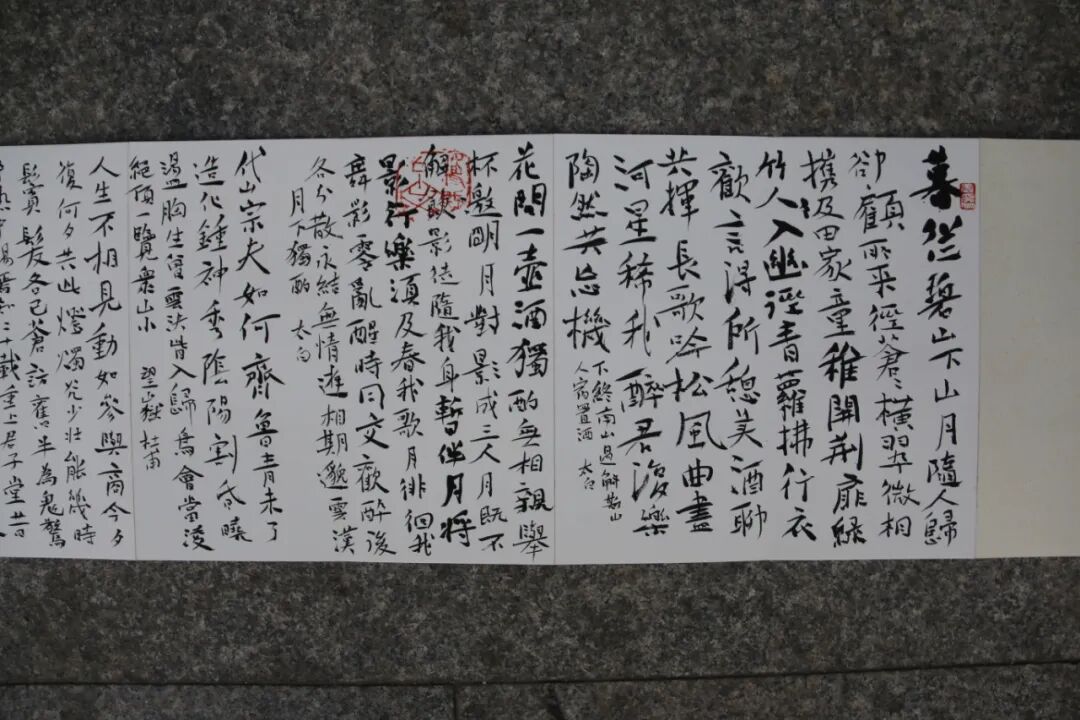 暮從碧山下山月隨人歸
卻顧所来徑蒼〻橫翠微相
携及田家童稚開荆扉綠
竹人入幽徑青蘿拂行衣
歡言得所憩美酒聊
共揮長歌吟松風曲盡
河星稀我醉君復樂
陶然共忘機
下終南山過斛斯山
人宿置酒 太白
花間一壺酒獨酌無相親舉
杯邀明月對影成三人月既不
解飲影徒隨我身暫伴月將
影行樂須及春我歌月徘徊我
舞影零亂醒時同交歡醉後
各分散永結無情遊相期邈雲漢
月下獨酌 太白
岱宗夫如何齊魯青未了
造化鍾神秀陰陽割昏曉
盪胸生曾雲決眥入歸鳥會當凌
絕頂一覽衆山小 望嶽 杜甫
人生不相見動如參與商今夕
復何夕共此燈燭光少壯能幾時
鬢髮各已蒼訪舊半為鬼驚
熱中腸焉知二十載重上君子堂昔